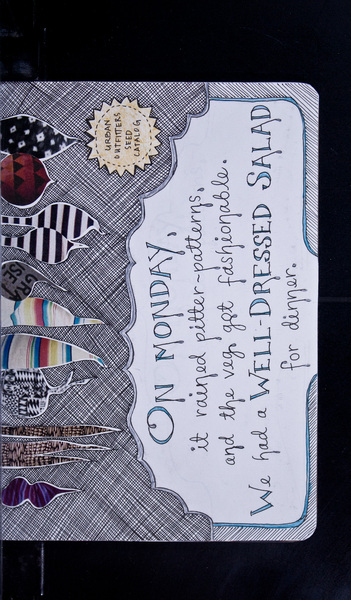 URBAN
OUTFITTERS
SEED
CATALOG
ON MONDAY,
it rained pitter-patterns,
and the veg got fashionable.
We had a WELL-DRESSED SALAD
for dinner.